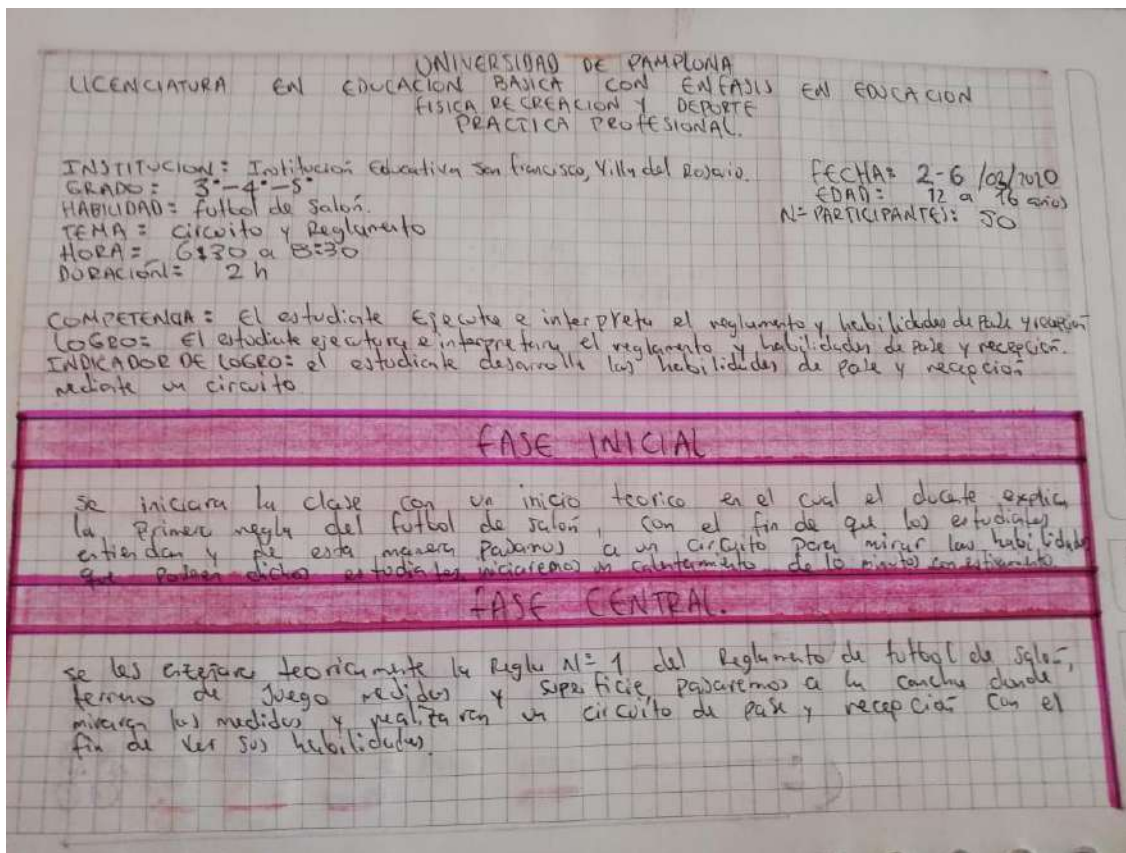 UNIVERSIDAD DE PAMPLONA
LICENCIATURA EN EDUCACION BASICA CON ENFASIS EN EDUCACION
FISICA RECREACION Y DEPORTE
PRACTICA PROFESIONAL.
INSTITUCION: Institución Educativa San francisco, Villa del Rosario.
FECHA: 2-6 /03/2020
GRADO: 3°-4°-5°
EDAD: 12 a 16 años
HABILIDAD: futbol de salon.
N= PARTICIPANTES: 50
TEMA: circuito y Reglamento
HORA: 6:30 a 8:30
DURACIÓN: 2 h
COMPETENCIA: El estudiante Ejecuta e interpreta el reglamento y habilidades de pase y recepcion
LOGRO: El estudiante ejecutara e interpretara el reglamento y habilidades de pase y recepción.
INDICADOR DE LOGRO: el estudiante desarrolla las habilidades de pase y recepcion
mediante un circuito
FASE INICIAL
se iniciara la clase con un inicio teorico en el cual el docente explica
la primera regla del futbol de salon, con el fin de que los estudiantes
entiendan y de esta manera pasamos a un circuito para mirar las habilidades
que poseen dichos estudiantes iniciaremos un calentamiento de 10 minutos con estiramiento
FASE CENTRAL.
se les teoricamente la Regla N= 1 del Reglamento de futbol de salon,
terreno de juego medidas y superficie, pasaremos a la cancha donde
miraran las medidas y realizaran un circuito de pase y recepcion con el
fin de ver sus habilidades